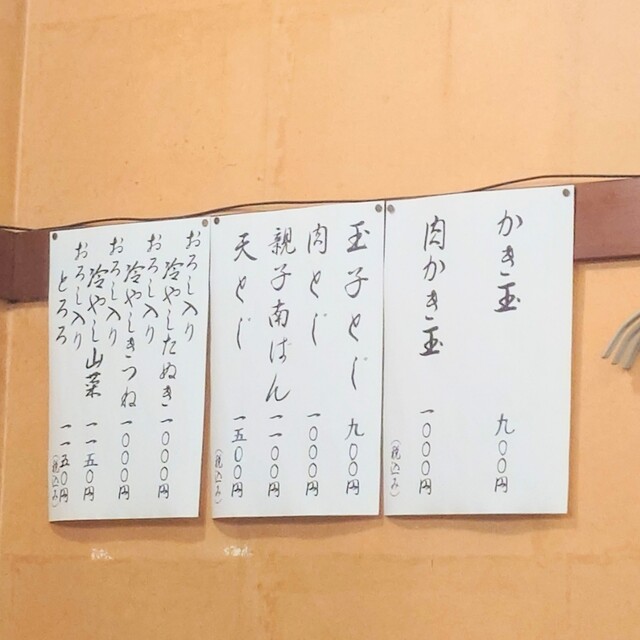 かき玉 九〇〇円
肉かき玉 一〇〇〇円
(税込み)
玉子とじ 九〇〇円
肉とじ 一〇〇〇円
親子南ばん 一一〇〇円
天とじ 一五〇〇円
(税込み)
おろし入り
冷やしたぬき 一〇〇〇円
おろし入り
冷やしきつね 一〇〇〇円
おろし入り
冷やし山菜 一一五〇円
おろし入り
とろろ 一一五〇円
(税込み)